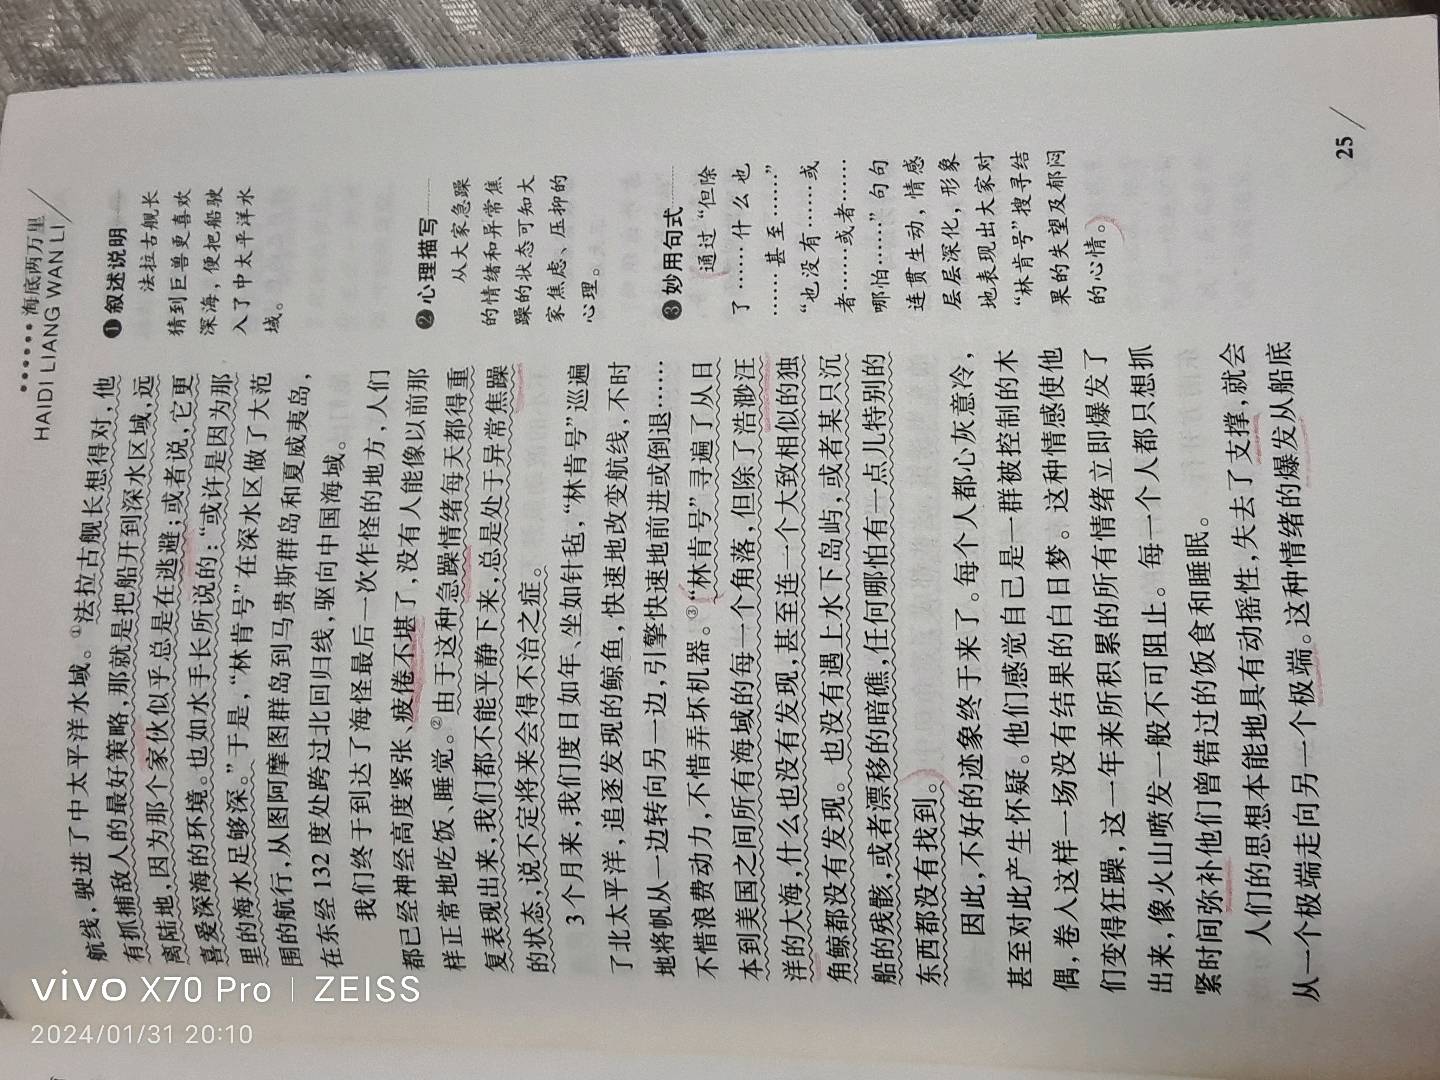 海底两万里
HAIDI LIANG WAN LI
航线，驶进了中太平洋水域。①法拉古舰长想得对，他
有抓捕敌人的最好策略，那就是把船开到深水区域，远
离陆地，因为那个家伙似乎总是在逃避；或者说，它更
喜爱深海的环境。也如水手长所说的：“或许是因为那
里的海水足够深。”于是，“林肯号”在深水区做了大范
围的航行，从图阿摩图群岛到马贵斯群岛和夏威夷岛，
在东经132度处跨过北回归线，驱向中国海域。
我们终于到达了海怪最后一次作怪的地方，人们
都已经神经高度紧张、疲倦不堪了，没有人能像以前那
样正常地吃饭、睡觉。②由于这种急躁情绪每天都得重
复表现出来，我们都不能平静下来，总是处于异常焦躁
的状态，说不定将来会得不治之症。
3个月来，我们度日如年、坐如针毡，“林肯号”巡遍
了北太平洋，追逐发现的鲸鱼，快速地改变航线，不时
地将帆从一边转向另一边，引擎快速地前进或倒退……
不惜浪费动力，不惜弄坏机器。③“林肯号”寻遍了从日
本到美国之间所有海域的每一个角落，但除了浩渺汪
洋的大海，什么也没有发现，甚至连一个大致相似的独
角鲸都没有发现。也没有遇上水下岛屿，或者某只沉
船的残骸，或者漂移的暗礁，任何哪怕有一点儿特别的
东西都没有找到。
因此，不好的迹象终于来了。每个人都心灰意冷，
甚至对此产生怀疑。他们感觉自己是一群被控制的木
偶，卷入这样一场没有结果的白日梦。这种情感使他
们变得狂躁，这一年来所积累的所有情绪立即爆发了
出来，像火山喷发一般不可阻止。每一个人都只想抓
紧时间弥补他们曾错过的饭食和睡眠。
人们的思想本能地具有动摇性，失去了支撑，就会
从一个极端走向另一个极端。这种情绪的爆发从船底
❶叙述说明
法拉古舰长
猜到巨兽更喜欢
深海，便把船驶
入了中太平洋水
域。
❷心理描写
从大家急躁
的情绪和异常焦
躁的状态可知大
家焦虑、压抑的
心理。
❸妙用句式
通过“但除
了………什么也
………甚至……”
“也没有………或
者………或者……
哪怕……”句句
连贯生动，情感
层层深化，形象
地表现出大家对
“林肯号”搜寻结
果的失望及郁闷
的心情。
25
vivo X70 Pro | ZEISS
2024/01/31 20:10